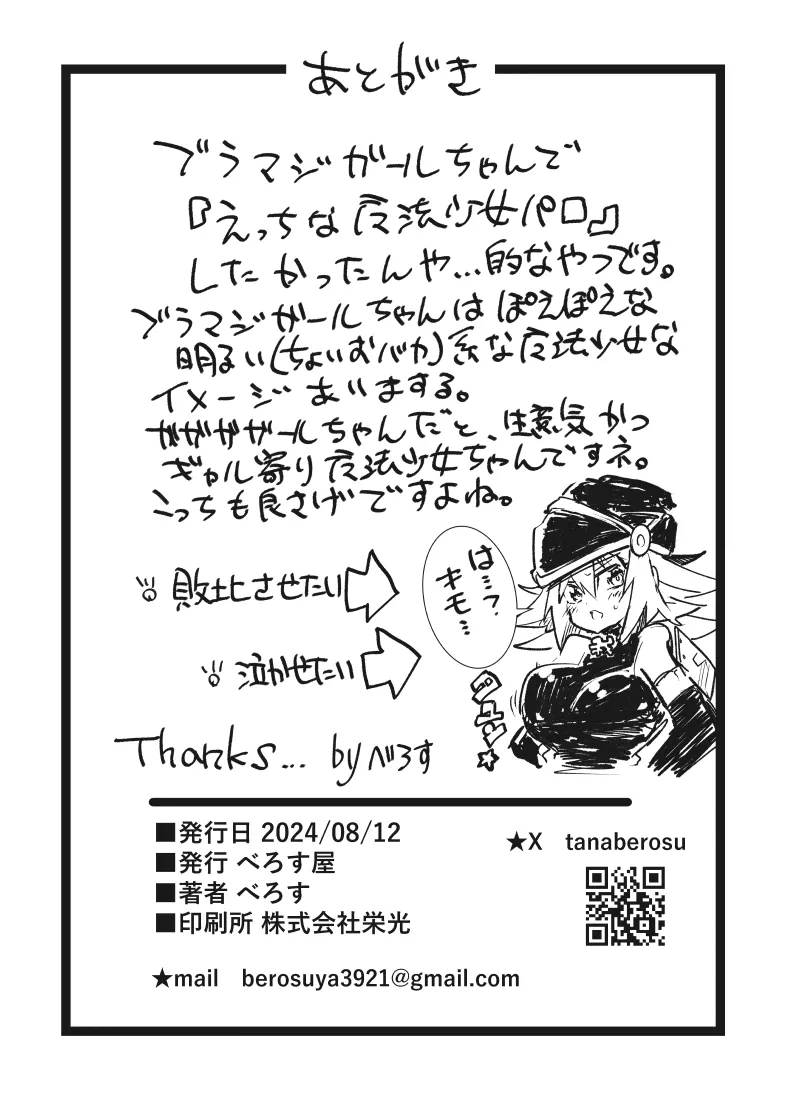 あとがき
ブラマジガールちゃんで
『えっちな魔法少女パロ』
したかったんや…的なやつです。
ブラマジガールちゃんは ぽえぽえな
明るい(ちょいおバカ)系な魔法少女な
イメージ ありまする。
ガガガガールちゃんだと、生意気かつ
ギャル寄り魔法少女ちゃんですネ。
こっちも良さげですよね。
敗北させたい
泣かせたい
は…?
キモ…
Thanks... by べろす
■発行日 2024/08/12
■発行 べろす屋
■著者 べろす
■印刷所 株式会社栄光
★X tanaberosu
★mail berosuya3921@gmail.com